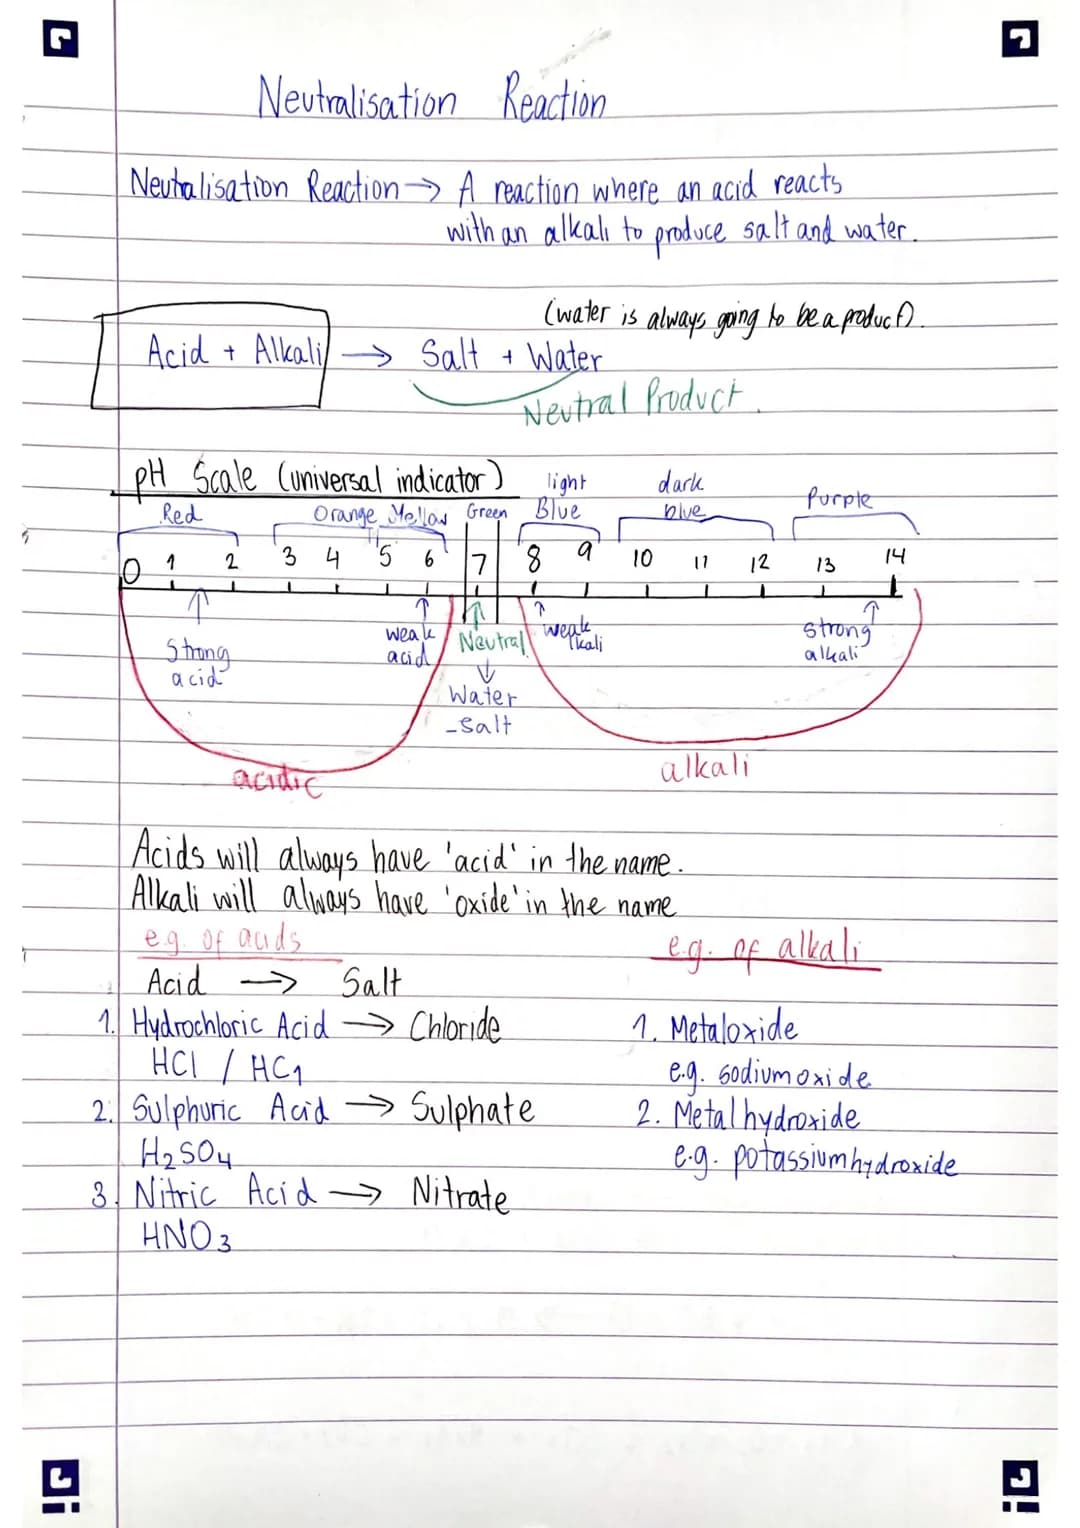 Neutralisation Reaction
Neutralisation Reaction → A reaction where an acid reacts
with an alkali to produce salt and water.
(water is always going to be a product).
Acid + Alkali → Salt + Water
Neutral Product.
pH Scale (universal indicator)
Red Orange Yellow Green light Blue dark blue Purple
0 1 2 3 4 5 6 7 8 9 10 11 12 13 14
strong acid
weak acid
Neutral
weak alkali
strong alkali
Water
-salt
acidic
alkali
Acids will always have 'acid' in the name.
Alkali will always have 'oxide' in the name
e.g. of acids
Acid → Salt
1. Hydrochloric Acid → Chloride
HCl / HC1
2. Sulphuric Acid → Sulphate
H2SO4
3. Nitric Acid → Nitrate
HNO3
e.g. of alkali
1. Metaloxide
e.g. sodiumoxide
2. Metalhydroxide
e.g. potassiumhydroxide